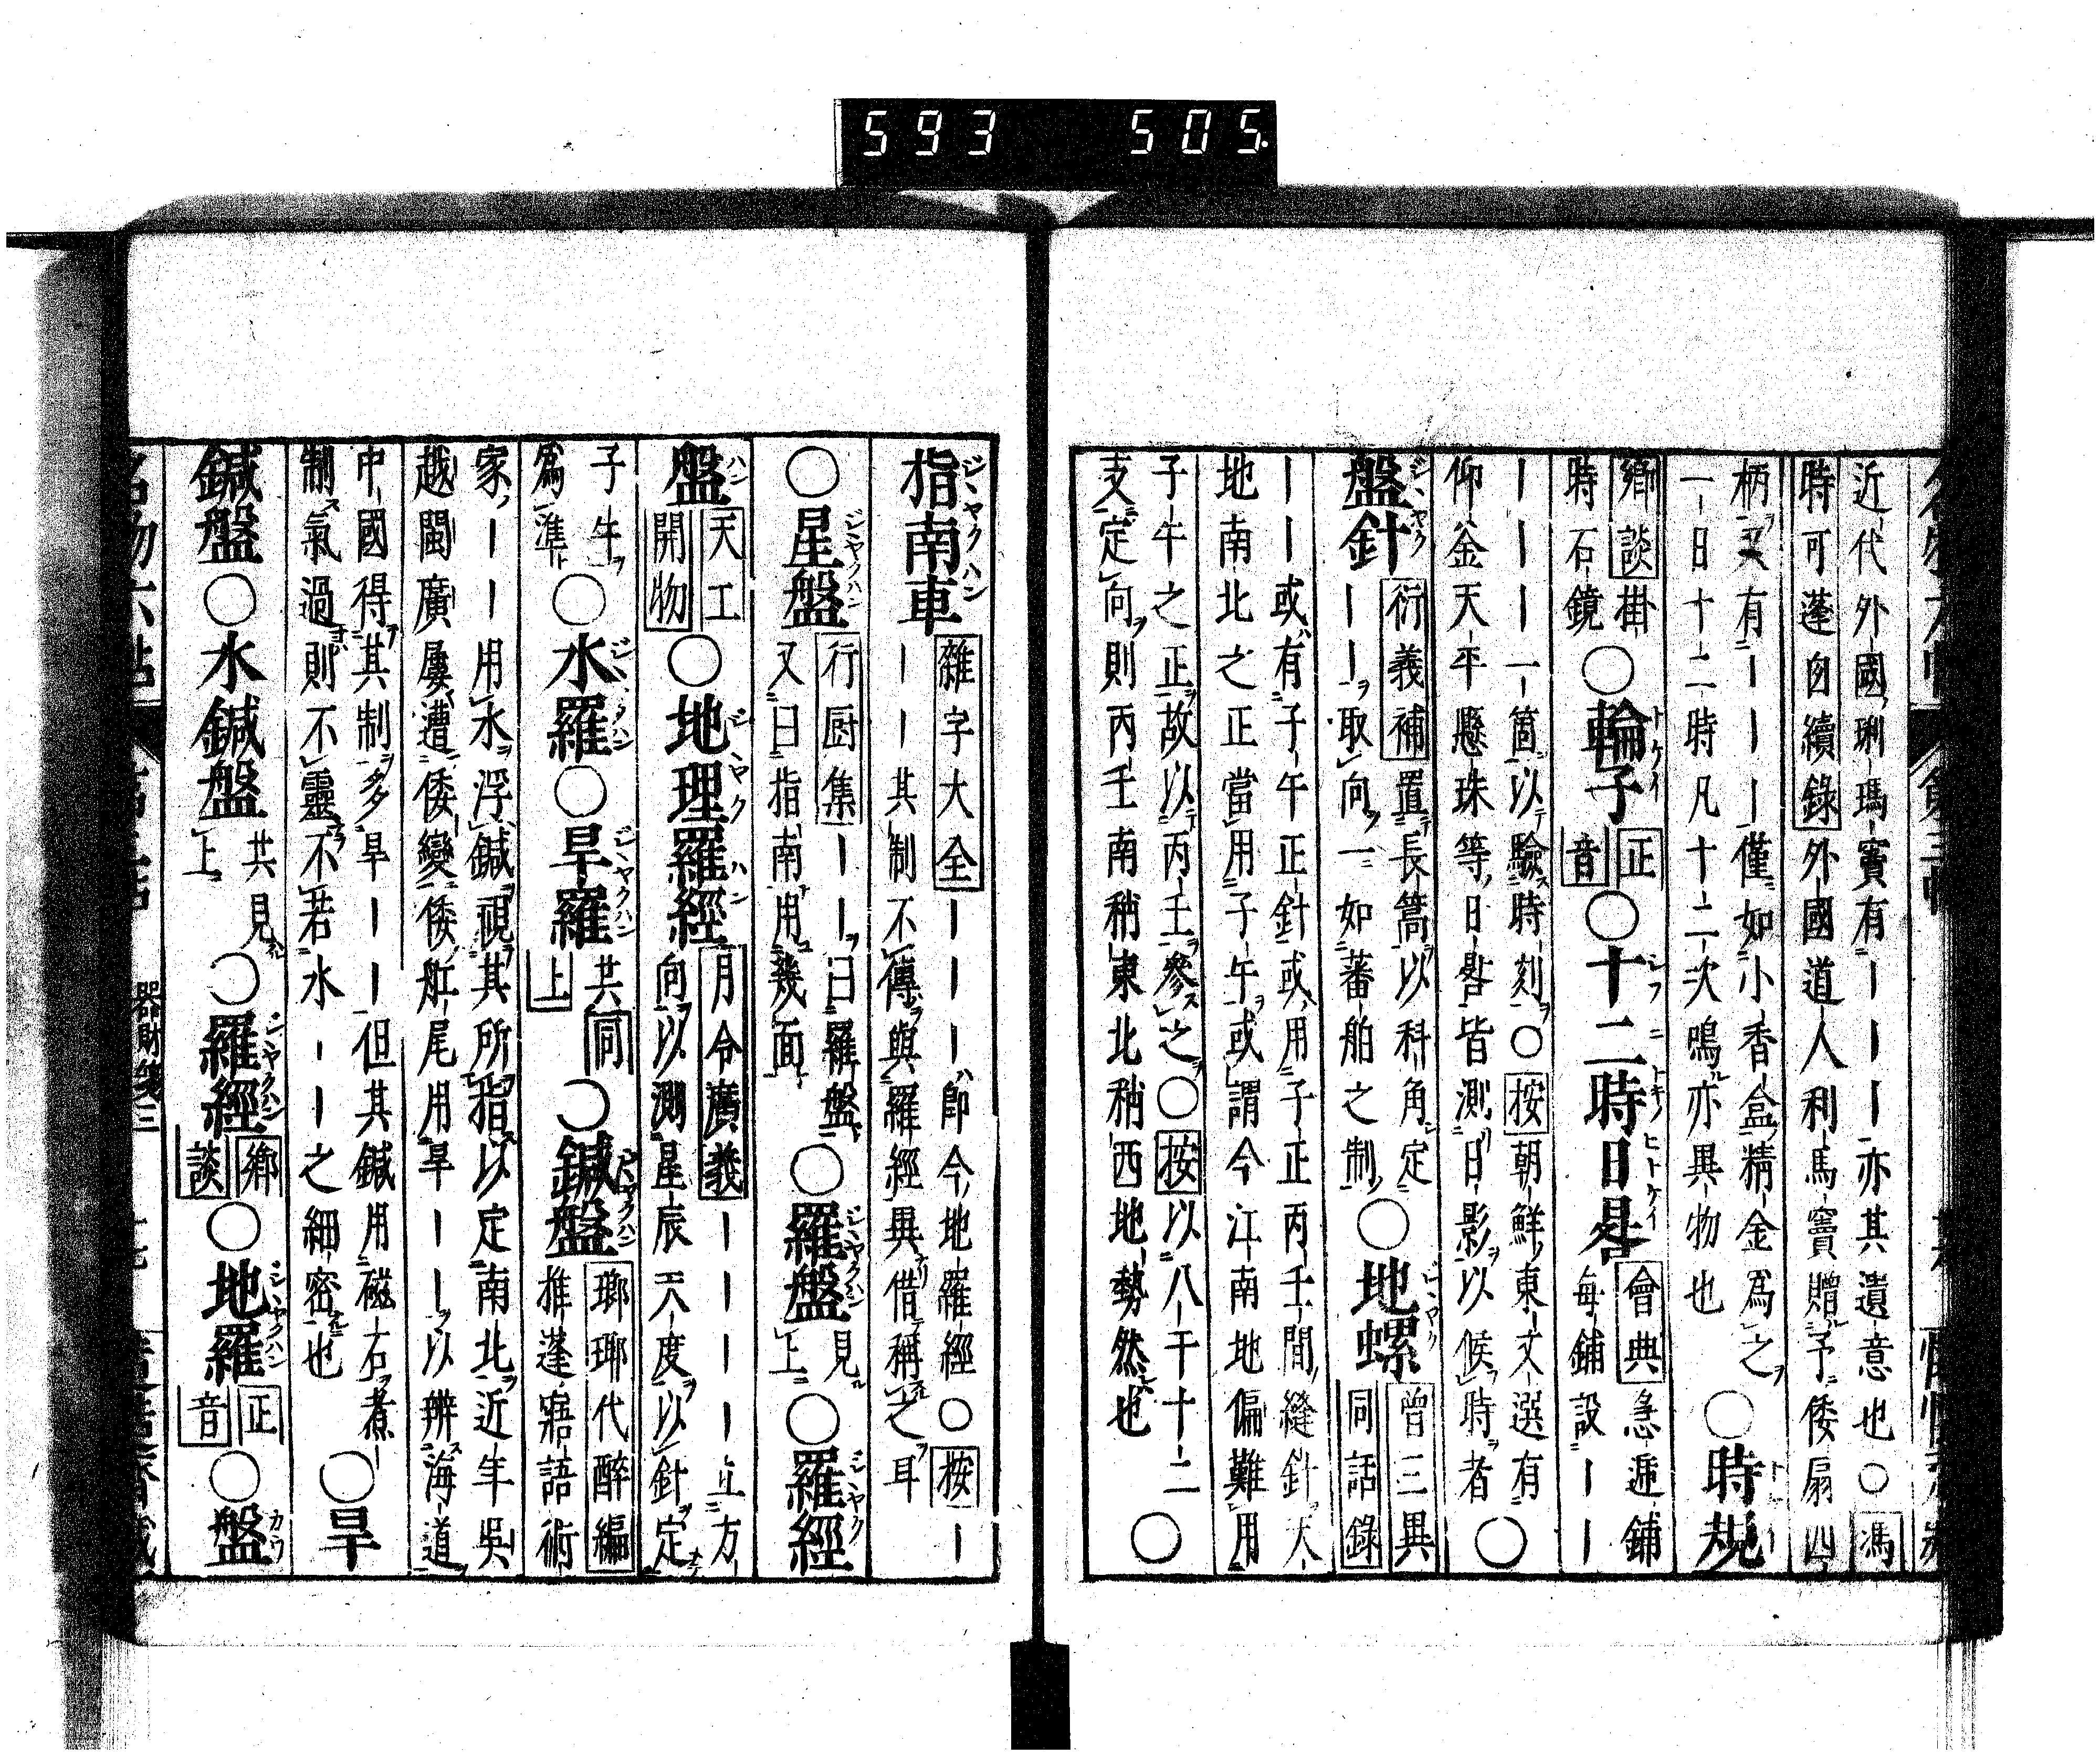 593 505
近代外國琍瑪竇有｜｜｜亦其遺意也○馮
時可蓬囱續錄外國道人利馬竇贈予倭扇四
柄又有｜｜｜僅如小香盒精金為之
一日十二時凡十二次鳴亦異物也○時規
鄉談掛
時石鏡○輪子正音○十二時日晷會典急遞鋪
每鋪設｜｜
｜｜｜一箇以驗時刻○按朝鮮東文選有
仰釜天平懸珠等日晷皆測日影以候時者○
盤針衍義補置長篙以科角定
｜｜取向一如蕃舶之制○地螺曾三異
同話錄
｜｜或有子午正針或用子正丙壬間縫針大
地南北之正當用子午或謂今江南地偏難用
子午之正故以丙壬參之○按以八干十二
支定向則丙壬南稍東北稍西地勢然也○
指南車雜字大全｜｜｜即今地羅經○按｜
｜｜其制不傳與羅經異借稱之耳
○星盤行厨集｜｜曰羅盤
又曰指南用幾面○羅盤見上○羅經
盤天工開物○地理羅經月令廣義｜｜｜｜正方
向以測星辰天度以針定
子午
為準○水羅○旱羅共同上○鍼盤瑯琊代醉編
推蓬寤語術
家｜｜用水浮鍼視其所指以定南北近年吳
越閩廣屢遭倭變倭舡尾用旱｜｜以辨海道
中國得其制多旱｜｜但其鍼用磁石煮
制氣過則不靈不若水｜｜之細密也○旱
鍼盤○水鍼盤共見上○羅經鄉談○地羅正音○盤
器財箋三